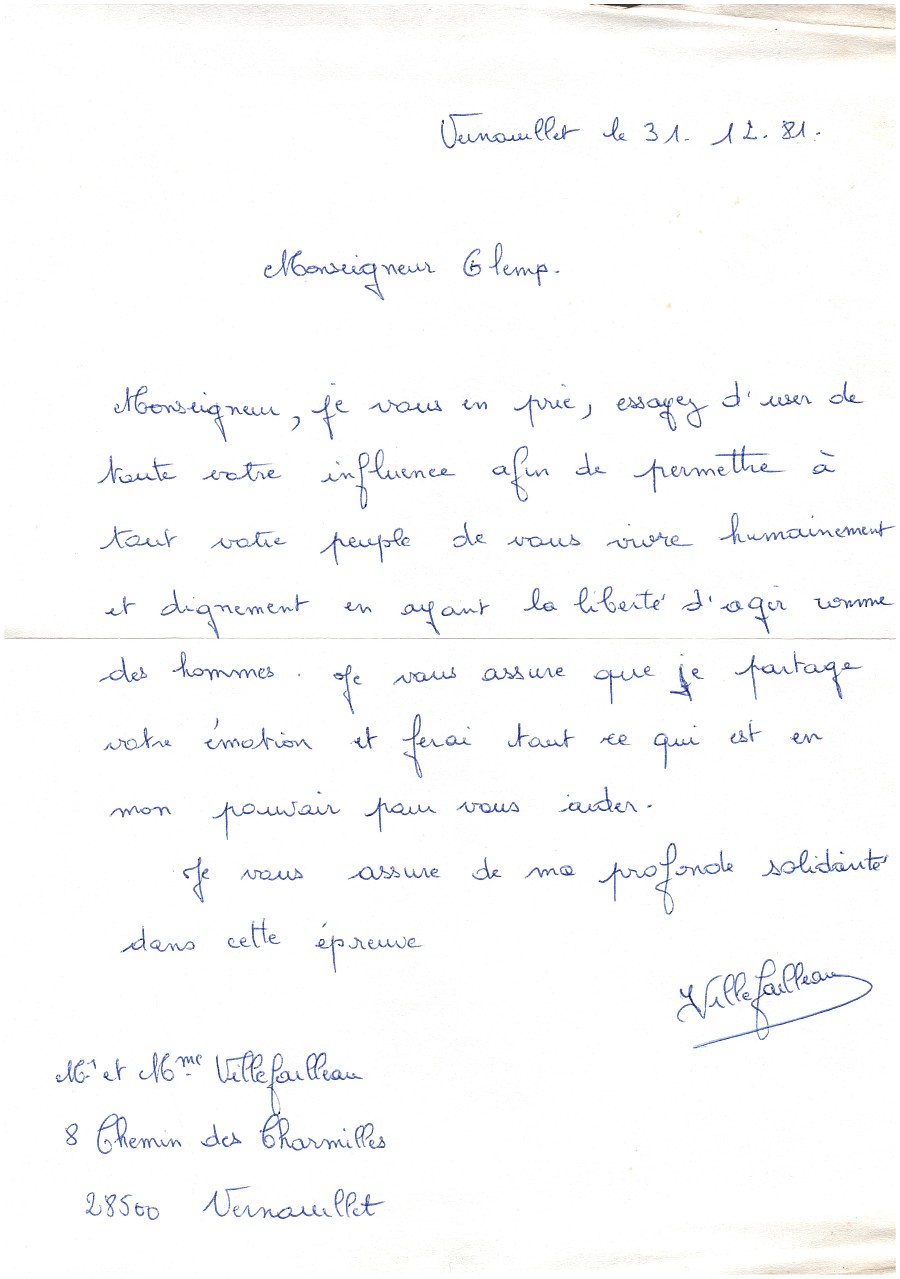 Vernouillet le 31. 12. 81.
Monseigneur Glemp.
Monseigneur, je vous en prie, essayez d'user de
toute votre influence afin de permettre à
tout votre peuple de vous vivre humainement
et dignement en ayant la liberté d'agir comme
des hommes. Je vous assure que je partage
votre émotion et ferai tout ce qui est en
mon pouvoir pour vous aider.
Je vous assure de ma profonde solidarité
dans cette épreuve
Villefailleau
Mr et Mme Villefailleau
8 Chemin des Charmilles
28500 Vernouillet